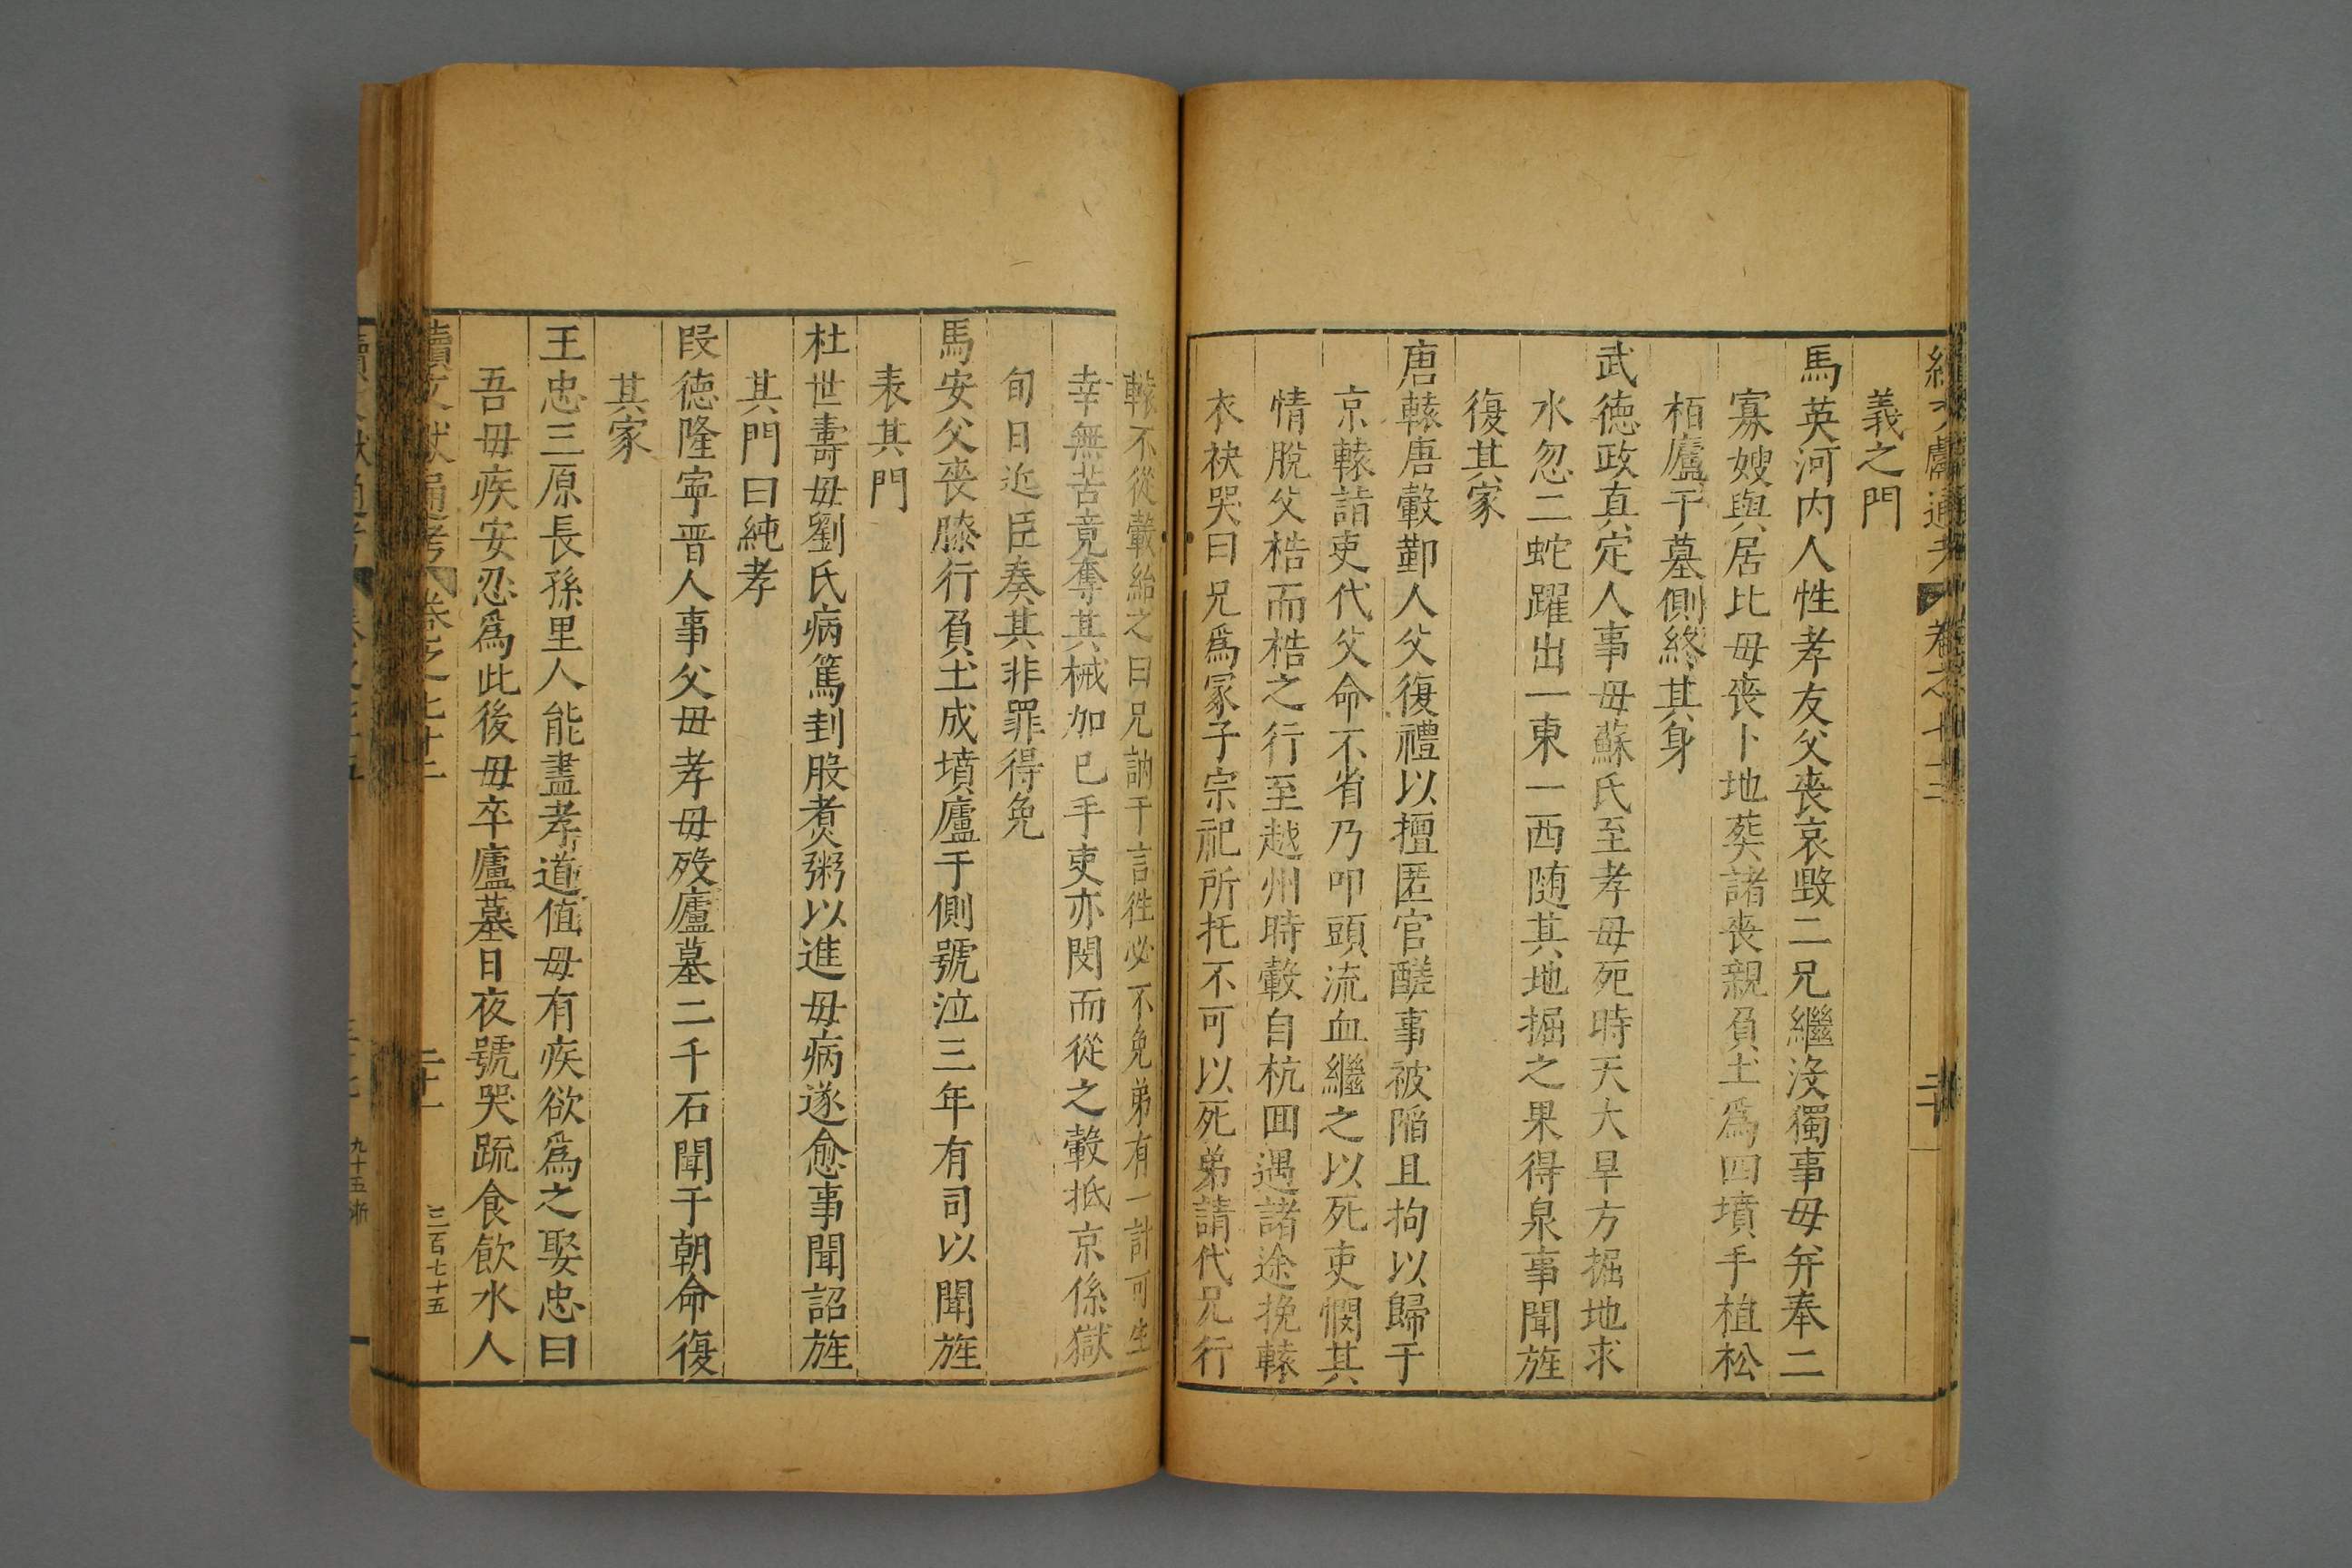 義之門
馬英河内人性孝友父喪哀毀二兄繼没獨事母并奉二
寡嫂與居比母喪卜地葬諸喪親負土爲四墳手植松
栢廬于墓側終其身
武德政真定人事母蘇氏至孝母死時天大旱方掘地求
水忽二蛇躍出一東一西随其地掘之果得泉事聞旌
復其家
唐轅唐轂鄞人父復禮以擅匿官醝事被陷且拘以歸于
京轅詣吏代父命不省乃叩頭流血繼之以死吏憫其
情脫父梏而梏之行至越州時轂自杭回遇諸途挽轅
衣袂哭曰兄爲冢子宗祀所托不可以死弟請代兄行
轅不從轂紿之曰兄訥于言徃必不免弟有一計可生
幸無苦竟奪其械加已手吏亦閔而從之轂抵京係獄
旬日近臣奏其非罪得免
馬安父喪膝行負土成墳廬于側號泣三年有司以聞旌
表其門
杜世壽母劉氏病篤刲股煑粥以進母病遂愈事聞詔旌
其門曰純孝
段德隆寧晋人事父母孝母殁廬墓二千石聞于朝命復
其家
王忠三原長孫里人能盡孝道值母有疾欲爲之娶忠曰
吾母疾安忍爲此後母卒廬墓日夜號哭䟽食飲水人
續文獻通考 卷之七十二
二十一
三百七十五